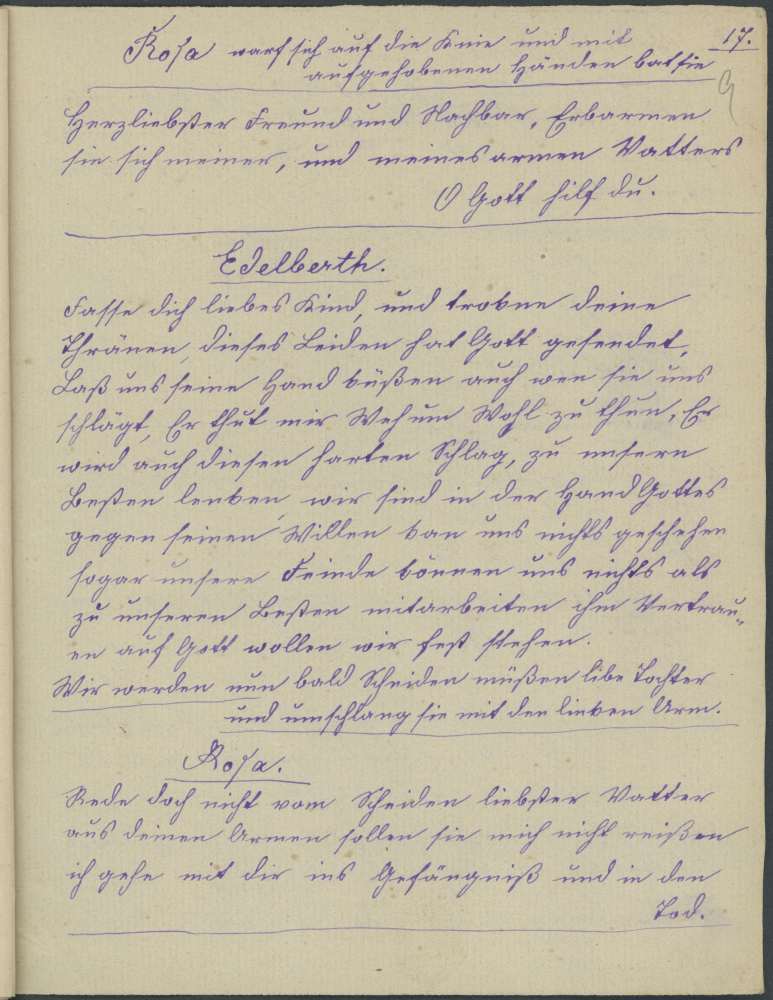 17.
Rosa warf sich auf die Knie und mit
aufgehobenen Händen bat sie
Herzliebster Freund und Nachbar, Erbarmen
sie sich meiner, und meines armen Vatters
O Gott hilf du.
Edelberth.
Fasse dich liebes Kind, und trokne deine
Thränen, dieses Leiden hat Gott gesendet,
Laß uns seine Hand küßen auch wen sie uns
schlägt, Er thut mir Weh um Wohl zu thun, Er
wird auch diesen harten Schlag, zu unsern
Besten lenken, wir sind in der Hand Gottes
gegen seinen Willen kan uns nichts geschehen
sogar unsere Feinde können uns nichts als
zu unseren Besten mitarbeiten ihm Vertrau„
en auf Gott wollen wir fest stehen.
Wir werden nun bald Scheiden müßen libe Tochter
und umschlang sie mit den linken Arm.
Rosa.
Rede doch nicht vom Scheiden liebster Vatter
aus deinen Armen sollen sie mich nicht reißen
ich gehe mit dir ins Gefängniß und in den
Tod.